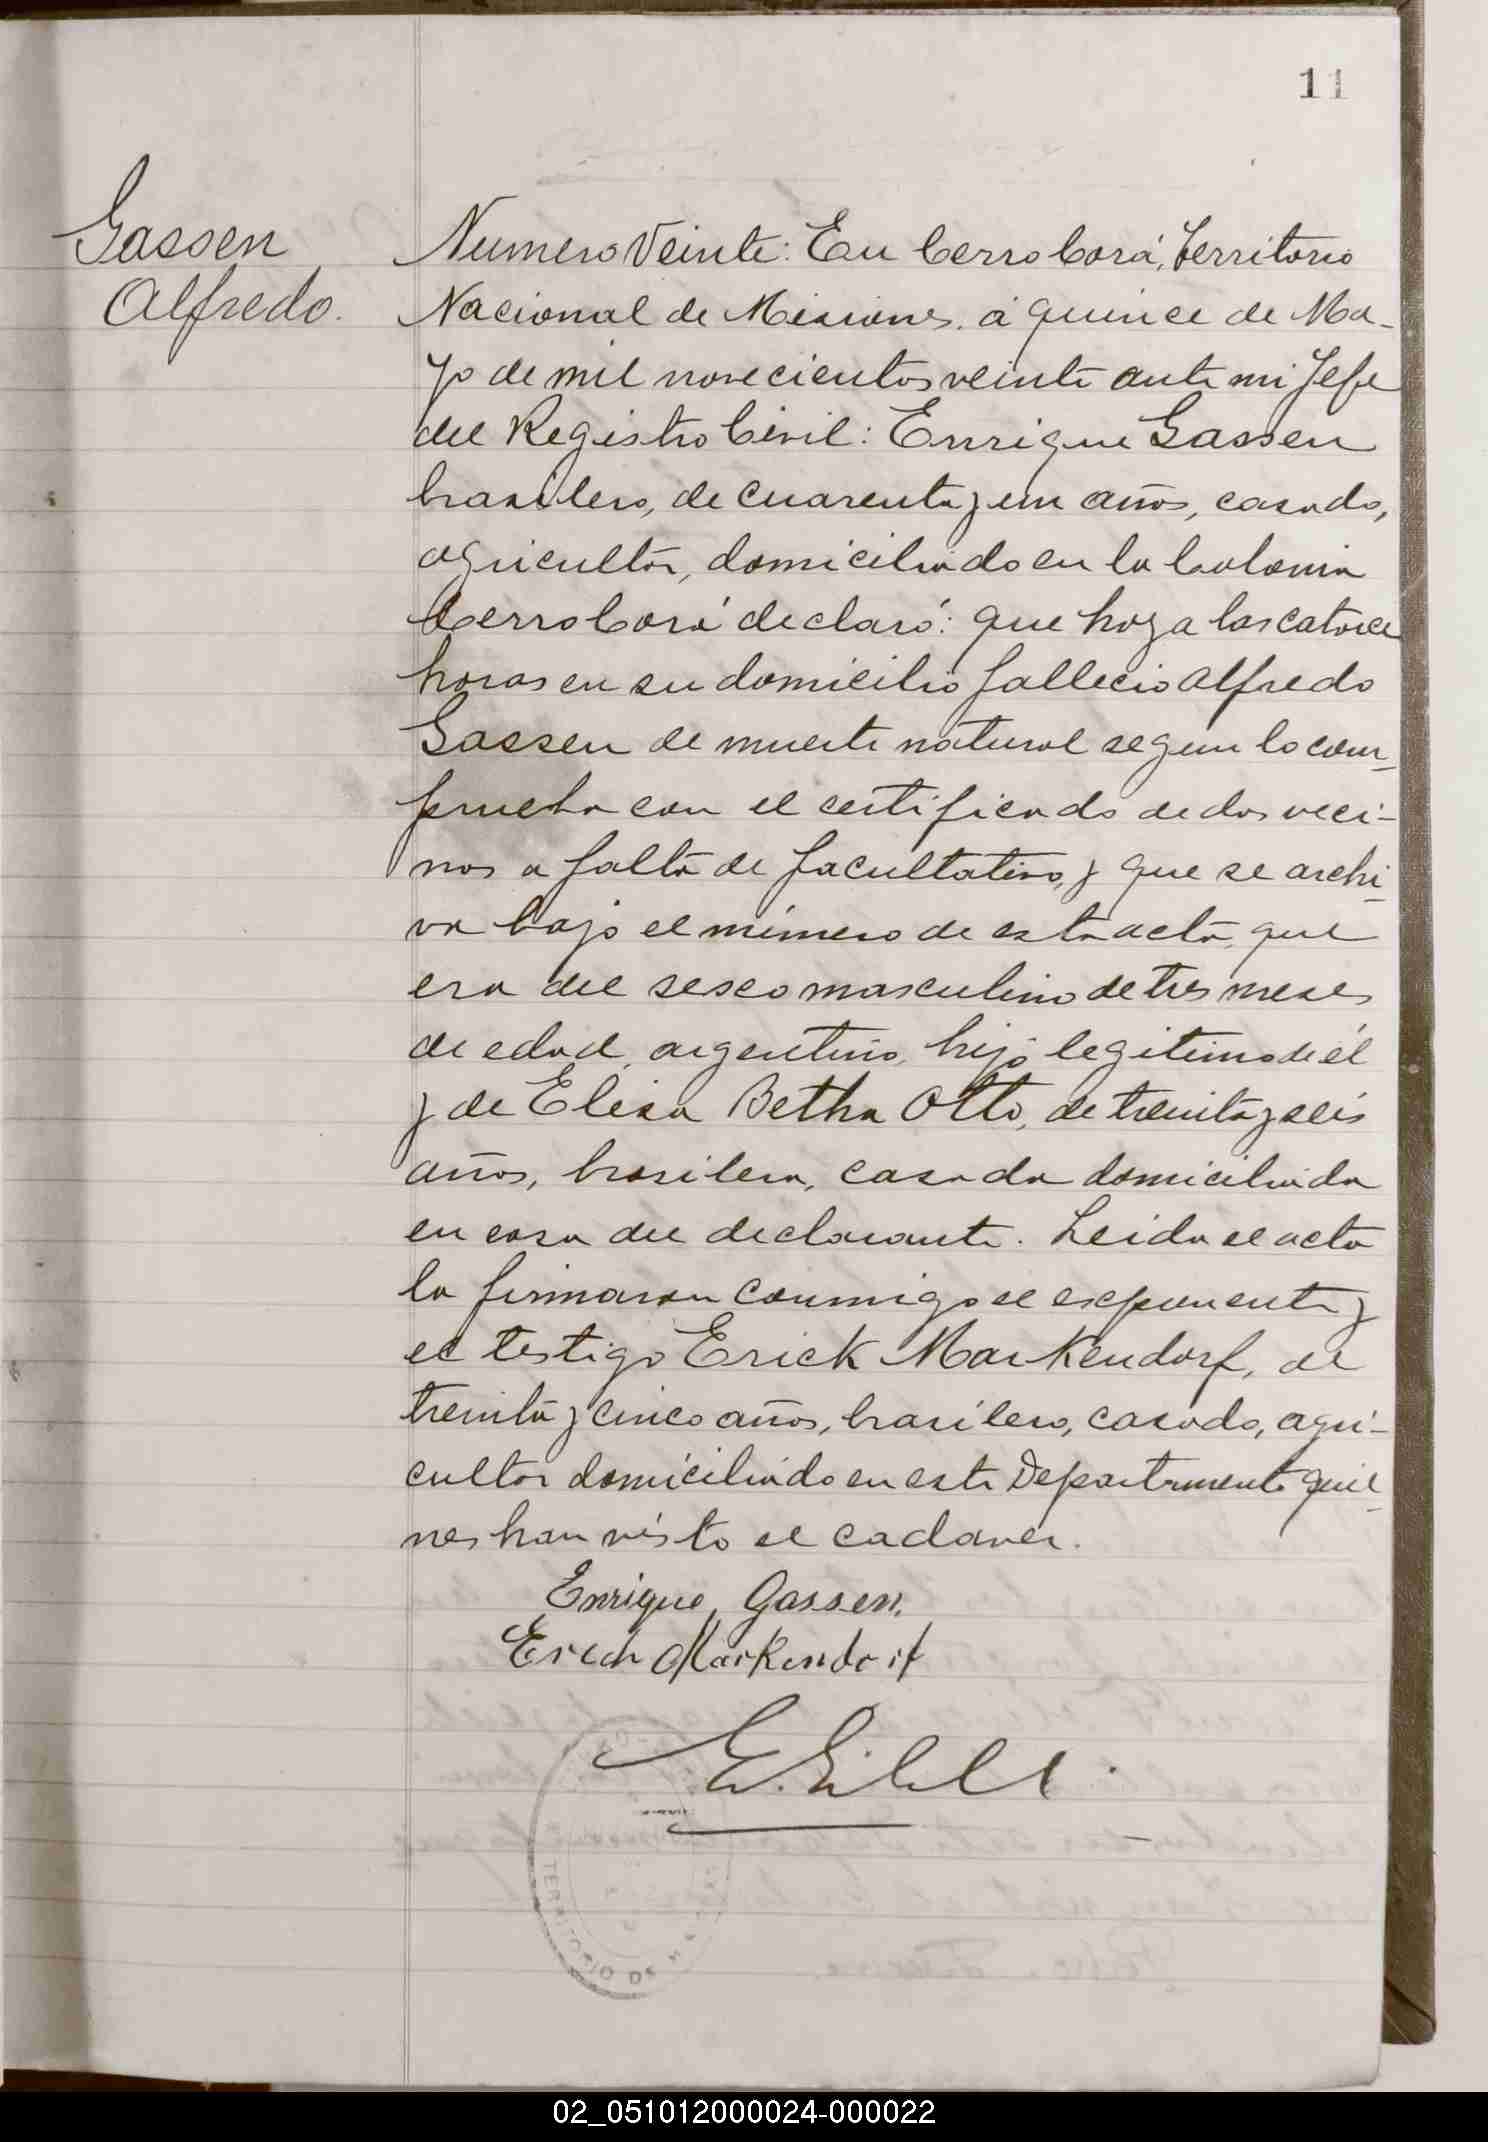 11
Gassen
Alfredo.
Numero Veinte: En Cerro Corá, Territorio
Nacional de Misiones. á quince de Ma-
yo de mil novecientos veinte ante mi Jefe
del Registro Civil: Enrique Gassen
brasilero, de cuarenta y un años, casado,
agricultor, domiciliado en la Colonia
Cerro Corá declaró: que hoy a las catorce
horas en su domicilio fallecio Alfredo
Gassen de muerte natural segun lo com-
prueba con el certificado de dos veci-
nos a falta de facultativo, y que se archi-
va bajo el número de esta acta, que
era del sexo masculino de tres meses
de edad, argentino, hijo legitimo de él
y de Elisa Betha Otto, de treinta y seis
años, brasilera, casada domiciliada
en casa del declarante. Leida el acta
la firmaron conmigo el exponente y
el testigo Erick Markendorf, de
treinta y cinco años, brasilero, casado, agri-
cultor domiciliado en este Departamento quie-
nes han visto el cadaver.
Enrique Gassen.
Erich Markendorf
TERRITORIO DE
02_051012000024-000022